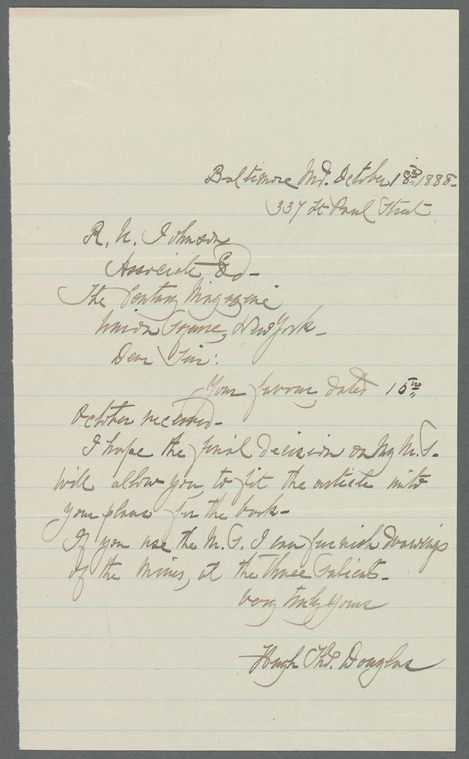 Baltimore Md. October 18th, 1888-
337 St Paul Street
R. U. Johnson
Associate Ed-
The Century Magazine
Union Square, New York-
Dear Sir:
Your favour, dated 15th
October received-
I hope the final decision on My M.S.
will allow you, to fit the article into
your plans for the book-
If you use the M.S. I can furnish drawings
of the Mines, at the three salients-
Very truly yours
Hugh Thos. Douglas